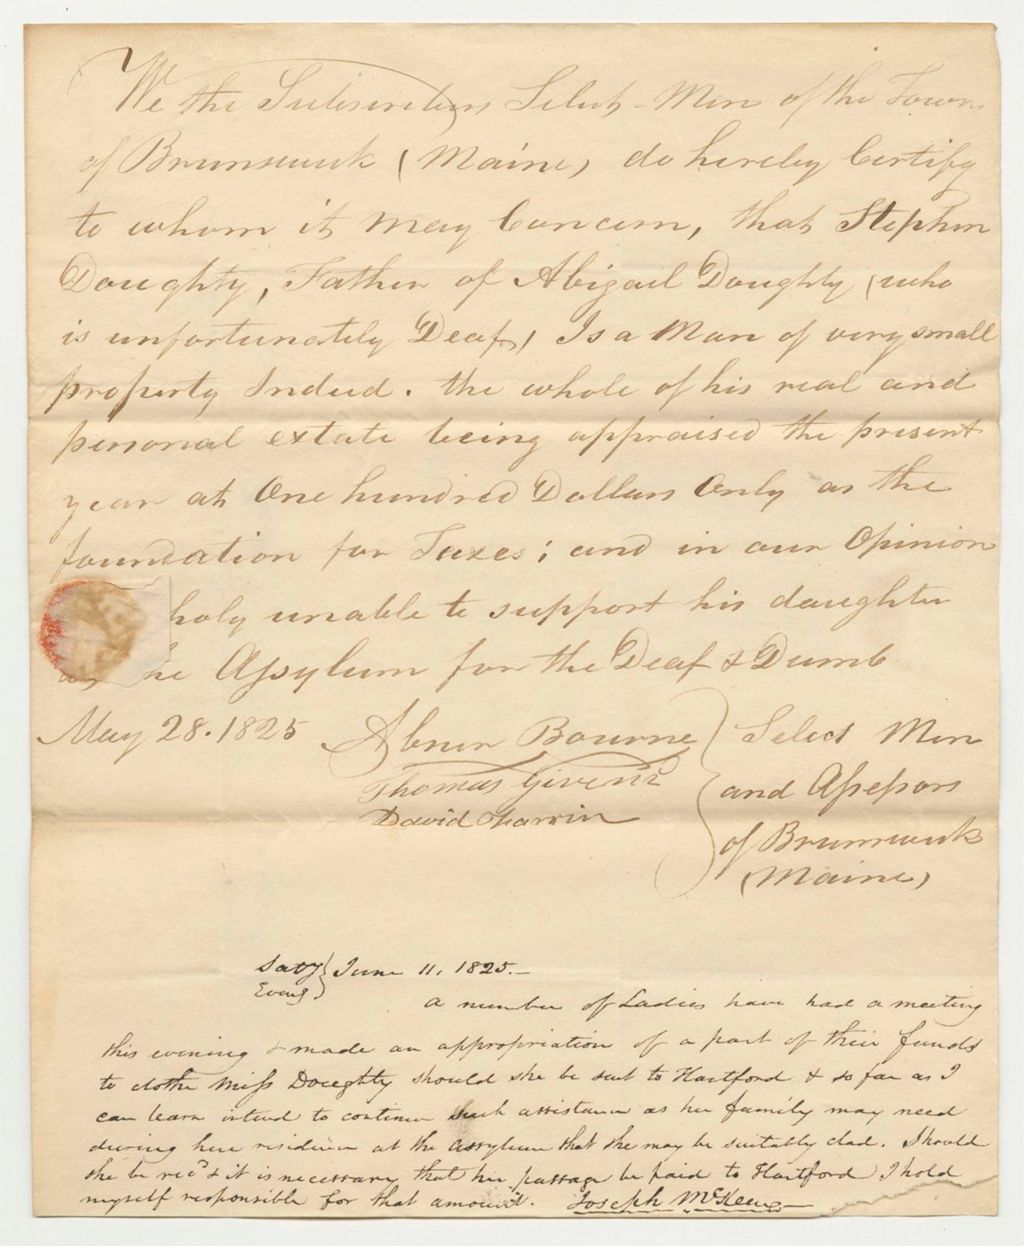 We the Subscribers Select-Men of the Town
of Brunswick (Maine) do hereby Certify
to whom it may Concern, that Stephen
Doughty, Father of Abigail Doughty (who
is unfortunately Deaf) Is a Man of very small
property Indeed. the whole of his real and
personal extate being appraised the present
year at One hundred Dollars Only as the
foundation for Taxes; and in our Opinion
holy unable to support his daughter
he Assylum for the Deaf & Dumb
May 28. 1825 Abner Bourne Select Men
Thomas Givens and Assessors
David of Brunswick
(Maine)
Saty Eveng June 11, 1825.—
a number of Ladies have had a meeting
this evening & made an appropriation of a part of their funds
to clothe Miss Doughty should she be sent to Hartford & so far as I
can learn intend to continue such assistance as her family may need
during her residence at the assylum that she may be suitably clad. Should
she be recd & it is necessary that her passage be paid to Hartford I hold
myself responsible for that amount. Joseph McKeen